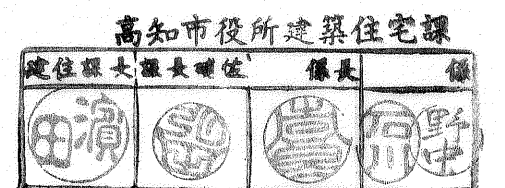 高知市役所建築住宅課
建住課長 課長補佐 係長 係
濱田 野中